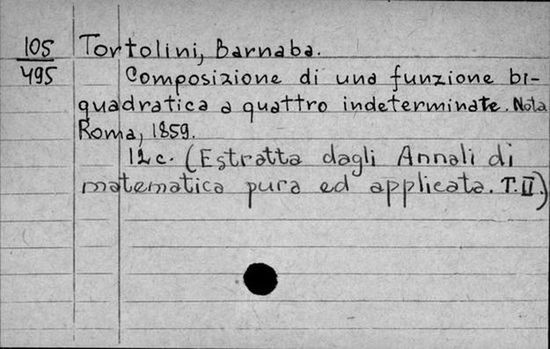 105 Tortolini, Barnaba.
495 Composizione di una funzione bi-
quadratica a quattro indeterminate. Nota
Roma, 1859.
12 c. (Estratta dagli Annali di
matematica pura ed applicata. T. II.)